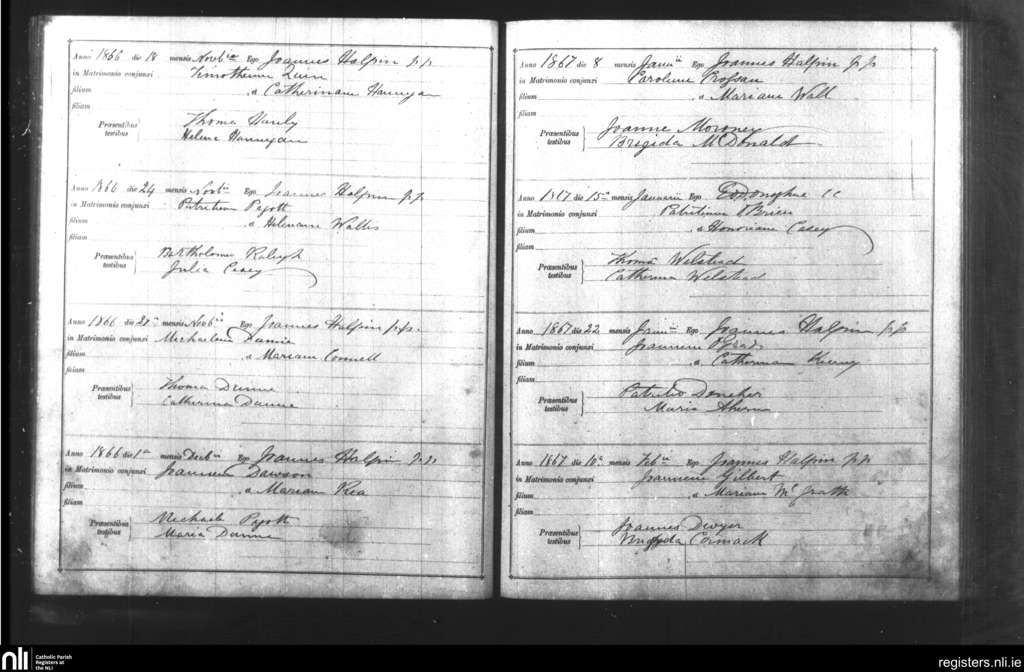 Anno 1866 die 18 mensis Novbris Ego Joannes Halpin p.p.
in Matrimonio conjunxi Timotheum Quin
filium a Catherinam Hannigan
filiam
Præsentibus testibus Thoma Hanly
Helena Hannigan
Anno 1866 die 24 mensis Ego Joannes Halpin p.p.
in Matrimonio conjunxi Patritium Pigott
filium a Helenam
filiam
Præsentibus testibus Bartholomeo Raleigh
Julia Casey
Anno 1866 die mensis Ego Joannes Halpin p.p.
in Matrimonio conjunxi Michaelem
filium a Mariam Connell
filiam
Præsentibus testibus Thoma Dunne
Catherina Dunne
Anno 1866 die 1a mensis Decbris Ego Joannes Halpin p.p.
in Matrimonio conjunxi Joannem Dawson
filium a Mariam Rea
filiam
Præsentibus testibus Michaele Pigott
Maria Dunne
Anno 1867 die 8 mensis Ego Joannes Halpin p.p.
in Matrimonio conjunxi
filium a Mariam Wall
filiam
Præsentibus testibus Joanne Moroney
Brigida McDonald
Anno 1867 die 15a mensis Januarii Ego E O'Donoghue CC
in Matrimonio conjunxi Patritium O'Brien
filium a Honoriam Casey
filiam
Præsentibus testibus Thoma Welstead
Catherina Welstead
Anno 1867 die 22 mensis Ego Joannes Halpin p.p.
in Matrimonio conjunxi Joannem
filium a Catherinam
filiam
Præsentibus testibus Patritio
Maria Ahern
Anno 1867 die 10a mensis Ego Joannes Halpin p.p.
in Matrimonio conjunxi Joannem Gilbert
filium a Mariam McGrath
filiam
Præsentibus testibus Joannes Dwyer
Cormack
nli Catholic Parish
Registers at
the NLI
registers.nli.ie